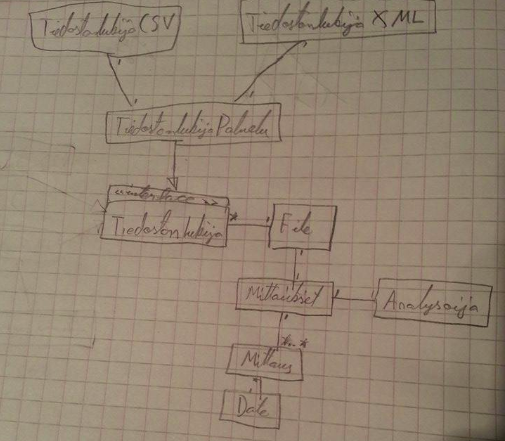 TiedostonlukijaCSV
TiedostonlukijaXML
TiedostonlukijaPalvelu
<<interface>>
Tiedostonlukija
*
File
Mittaukset
Analysoija
*..*
Mittaus
Date